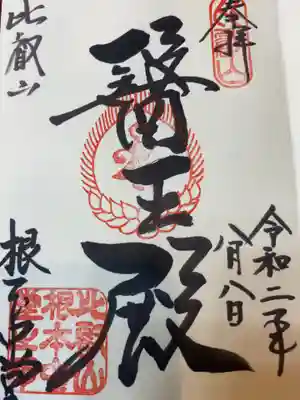 奉拝
令和二年
八月八日
醫王殿
比叡山
根本中堂
比叡山
根本中
堂之